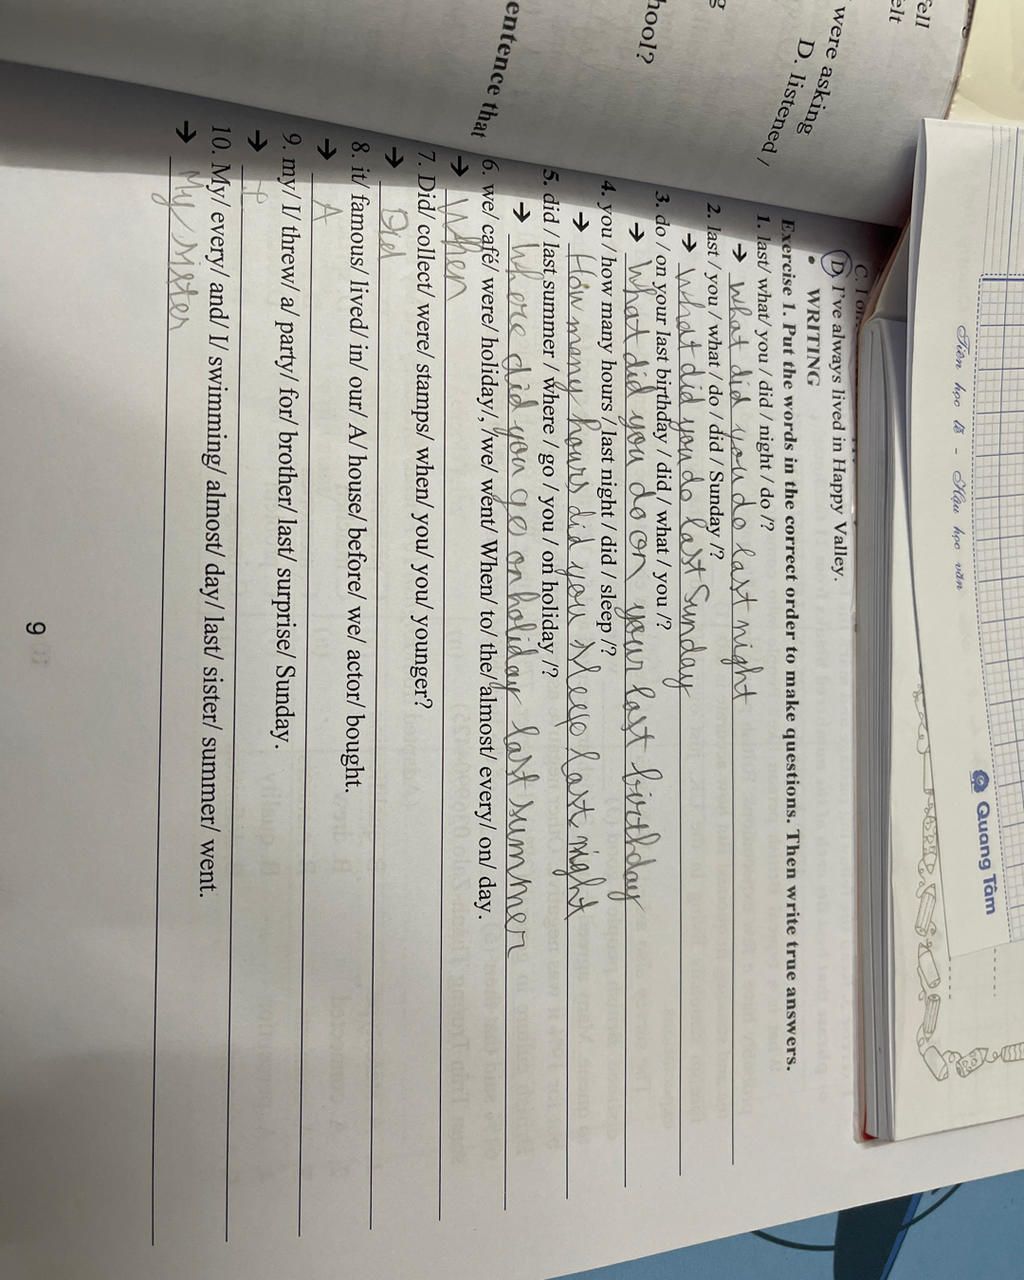 Tiên học lễ - Hậu học văn
Quang Tâm
ell
elt
were asking
D. listened /
g
hool?
entence that
C. I
D. I've always lived in Happy Valley.
• WRITING
Exercise 1. Put the words in the correct order to make questions. Then write true answers.
1. last/ what/ you / did / night / do /?
→ what did you do last night
2. last / you / what / do / did / Sunday /?
→ What did you do last Sunday
3. do / on your last birthday / did / what / you /?
→ What did you do on your last birthday
4. you / how many hours / last night / did / sleep /?
→ How meny hours did you sleep last night
5. did / last summer / where / go / you / on holiday /?
→ Where did you go on holiday last summer
6. we/ café/ were/ holiday/, /we/ went/ When/ to/ the/ almost/ every/ on/ day.
→ When
7. Did/ collect/ were/ stamps/ when/ you/ you/ younger?
→ Did
8. it/ famous/ lived/ in/ our/ A/ house/ before/ we/ actor/ bought.
→ A
9. my/ I/ threw/ a/ party/ for/ brother/ last/ surprise/ Sunday.
→ I
10. My/ every/ and/ I/ swimming/ almost/ day/ last/ sister/ summer/ went.
→ My sister
9